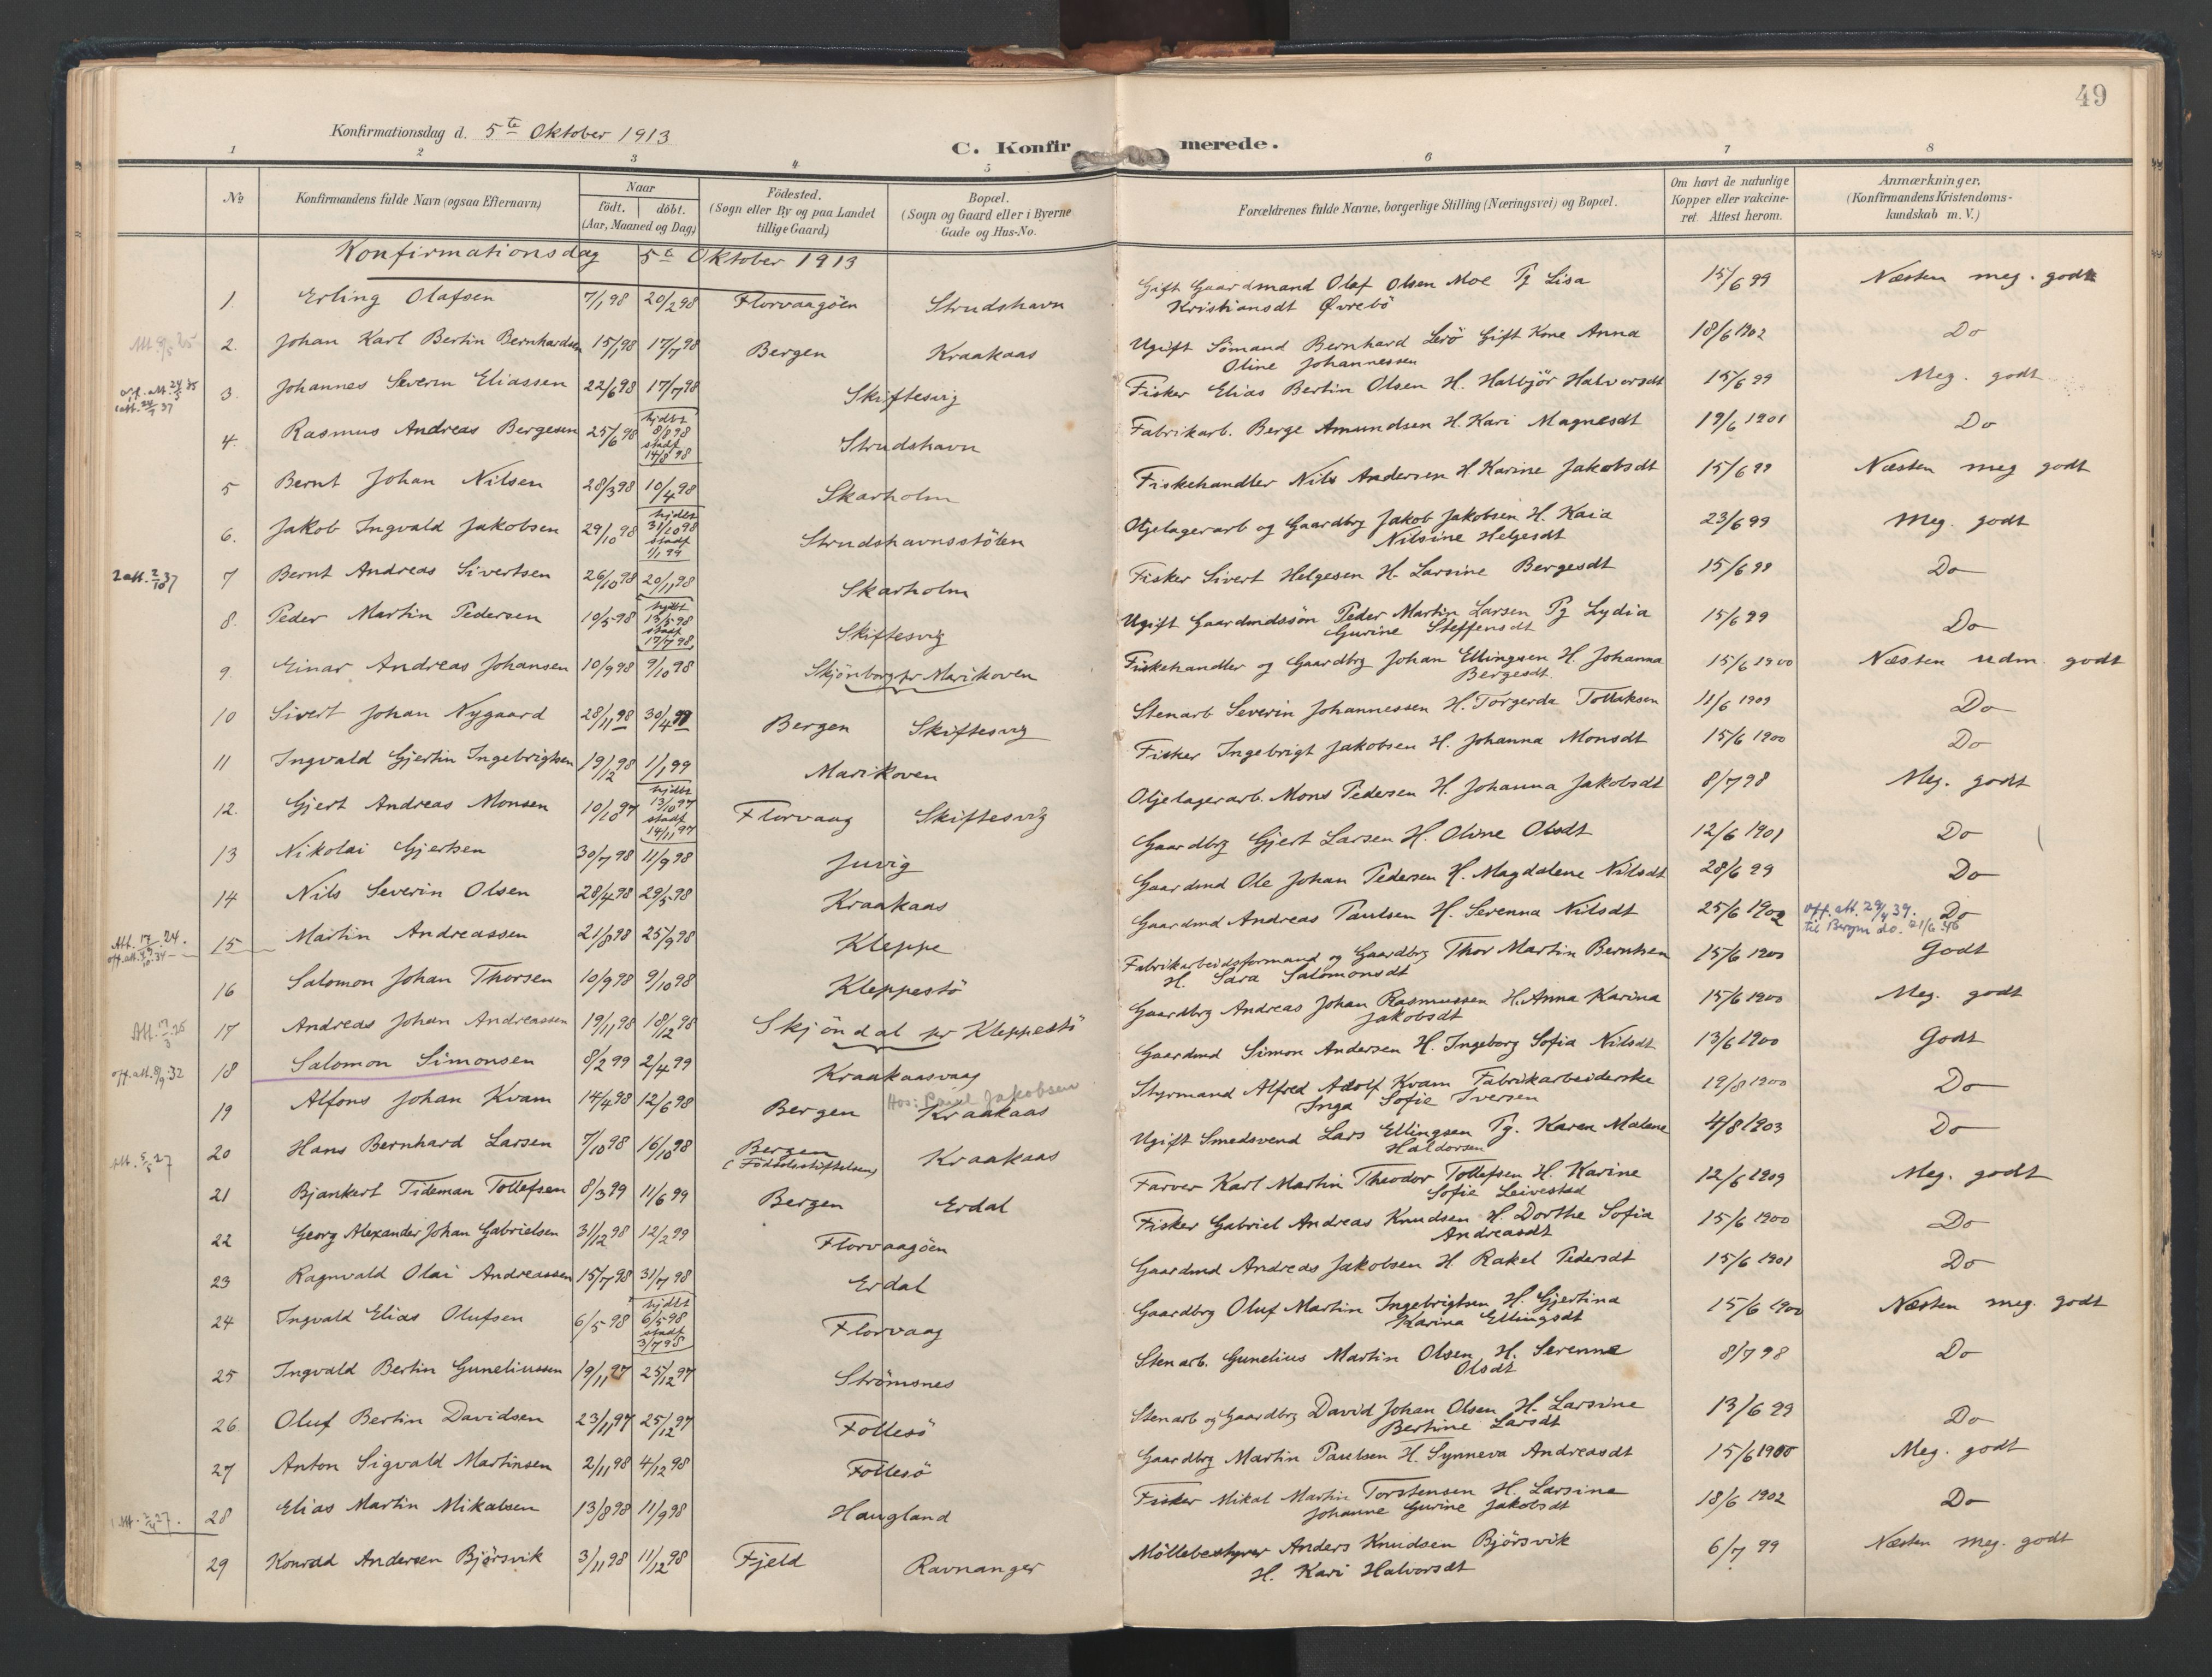 49
Konfirmationsdag d. 5te Oktober 1913
C. Konfirmerede.
1 2 3 4 5 6 7 8
No
Konfirmandens fulde Navn (ogsaa Efternavn)
Naar
födt. döbt.
(Aar, Maaned og Dag)
Födested.
(Sogn eller By og paa Landet
tillige Gaard)
Bopæl.
(Sogn og Gaard eller i Byerne
Gade og Hus-No.
Forældrenes fulde Navne, borgerlige Stilling (Næringsvei) og Bopæl.
Om havt de naturlige
Kopper eller vakcine-
ret Attest herom.
Anmærkninger,
(Konfirmandens Kristendoms-
kundskab m. V.)
Konfirmationsdag 5te Oktober 1913
1. Erling Olafsen 7/1 98 20/2 98 Florvaagöen Strudshavn Gift Gaardmand Olaf Olsen Moe Pg Lisa 15/6 99 Næsten meg. godt
Kristiansdt Øvrebö
2. Johan Karl Bertin Bernhardsen 15/1 98 17/7 98 Bergen Kraakaas Ugift Sömand Bernhard Lerö Gift Kone Anna 18/6 1902 Do
Oline Johannessen
off. att. 24/5 35
att. 24/1 37
3. Johannes Severin Eliassen 22/6 98 17/7 98 Skiftesvig Fisker Elias Bertin Olsen H. Halbjör Halvorsdt 15/6 99 Meg. godt
4. Rasmus Andreas Bergesen 25/6 98 hjdbt 8/8 98 stadf 14/8 98 Strudshavn Fabrikarb. Berge Amundsen H. Kari Magnesdt 19/6 1901 Do
5 Bernt Johan Nilsen 28/3 98 10/4 98 Skarholm Fiskehandler Nils Andersen H Karine Jakobsdt 15/6 99 Næsten meg godt
6. Jakob Ingvald Jakobsen 29/10 98 hjdbt 31/10 98 stadf 1/1 99 Strudshavnsstölen Oljelagerarb og Gaardbrg Jakob Jakobsen H. Kaia 23/6 99 Meg. godt
Nilsine Helgesdt
2 att. 2/10 37
7 Bernt Andreas Sivertsen 26/10 98 20/11 98 Skarholm Fisker Sivert Helgesen H. Larsine Bergesdt 15/6 99 Do
8. Peder Martin Pedersen 10/5 98 hjdbt 13/5 98 stadf 17/7 98 Skiftesvig Ugift Gaardmdssön Peder Martin Larsen Pg Lydia 15/6 99 Do
Gurine Steffensdt
9. Einar Andreas Johansen 10/9 98 9/10 98 Skjönborg pr Marikoven Fiskehandler og Gaardbrg Johan Ellingsen H. Johanna 15/6 1900 Næsten udm. godt
Bergesdt.
10 Sivert Johan Nygaard 28/11 98 30/4 99 Bergen Skiftesvig Stenarb Severin Johannessen H. Torgerda Tollaksen 11/6 1909 Do
11 Ingvald Gjertin Ingebrigtsen 19/12 98 1/1 99 Marikoven Fisker Ingebrigt Jakobsen H. Johanna Monsdt 15/6 1900 Do
12. Gjert Andreas Monsen 10/10 97 hjdbt 13/10 97 stadf 14/11 97 Florvaag Skiftesvig Oljelagerarb. Mons Pedersen H. Johanna Jakobsdt 8/7 98 Meg. godt
13 Nikolai Gjertsen 30/7 98 11/9 98 Juvig Gaardbrg Gjert Larsen H. Oline Olsdt 12/6 1901 Do
14 Nils Severin Olsen 28/4 98 29/5 98 Kraakaas Gaardmd Ole Johan Pedersen H. Magdalene Nilsdt 28/6 99 Do
Att. 17/9 24.
15 Martin Andreassen 21/8 98 25/9 98 Kleppe Gaardmd Andreas Paulsen H. Serenna Nilsdt 25/6 1902 off. att. 29/4 39. Do
til Bergen do. 21/6 46
16 Salomon Johan Thorsen 10/9 98 9/10 98 Kleppestö Fabrikarbeidsformand og Gaardbrg Thor Martin Berntsen 15/6 1900 Godt
H. Sara Salomonsdt
17 Andreas Johan Andreassen 19/11 98 18/12 98 Skjöndal pr Kleppestö Gaardbrg Andreas Johan Rasmussen H. Anna Karina 15/6 1900 Meg. godt
Jakobsdt
off. att. 8/9 32
18 Salomon Simonsen 8/2 99 2/4 99 Kraakaasvaag Gaardmd Simon Andersen H. Ingeborg Sofia Nilsdt 13/6 1900 Godt
Hos: Paul Jakobsen
19 Alfons Johan Kvam 14/4 98 12/6 98 Bergen Kraakaas Styrmand Alfred Adolf Kvam Fabrikarbeiderske 19/8 1900 Do
Inga Sofie Iversen
att. 5/5 27
20 Hans Bernhard Larsen 7/10 98 16/10 98 Bergen (Födselsstiftelsen) Kraakaas Ugift Smedsvend Lars Ellingsen Pg. Karen Malene 4/8 1903 Do
Haldorsen
21 Bjankert Tideman Tollefsen 8/3 99 11/6 99 Bergen Erdal Farver Karl Martin Theodor Tollefsen H. Karine 12/6 1909 Meg. godt
Sofie Leivestad
22 Georg Alexander Johan Gabrielsen 31/12 98 12/2 99 Florvaagöen Fisker Gabriel Andreas Knudsen H. Dorthe Sofia 15/6 1900 Do
Andreasdt
23 Ragnvald Olai Andreassen 15/7 98 31/7 98 Erdal Gaardmd Andreas Jakobsen H Rakel Pedersdt 15/6 1901 Do
24 Ingvald Elias Olufsen 6/5 98 hjdbt 6/5 98 stadf 3/7 98 Florvaag Gaardbrg Oluf Martin Ingebrigtsen H. Gjertina 15/6 1900 Næsten meg. godt
Karina Ellingsdt
25 Ingvald Bertin Guneliussen 19/11 97 25/12 97 Strömsnes Stenarb. Gunelius Martin Olsen H. Serenne 8/7 98 Do
Olsdt
26. Oluf Bertin Davidsen 23/11 97 25/12 97 Follesö Stenarb og Gaardbrg David Johan Olsen H. Larsine 13/6 99 Do
Bertine Larsdt
27 Anton Sigvald Martinsen 2/11 98 4/12 98 Follesö Gaardbrg Martin Paulsen H. Synneva Andreasdt 15/6 1900 Meg. godt
28 Elias Martin Mikalsen 13/8 98 11/9 98 Haugland Fisker Mikal Martin Torstensen H. Larsine 18/6 1902 Do
Johanne Gurine Jakobsdt
29 Konrad Andersen Bjørsvik 3/11 98 11/12 98 Fjeld Ravnanger Möllebestyrer Anders Knudsen Björsvik 6/7 99 Næsten meg. godt
H. Kari Halvorsdt